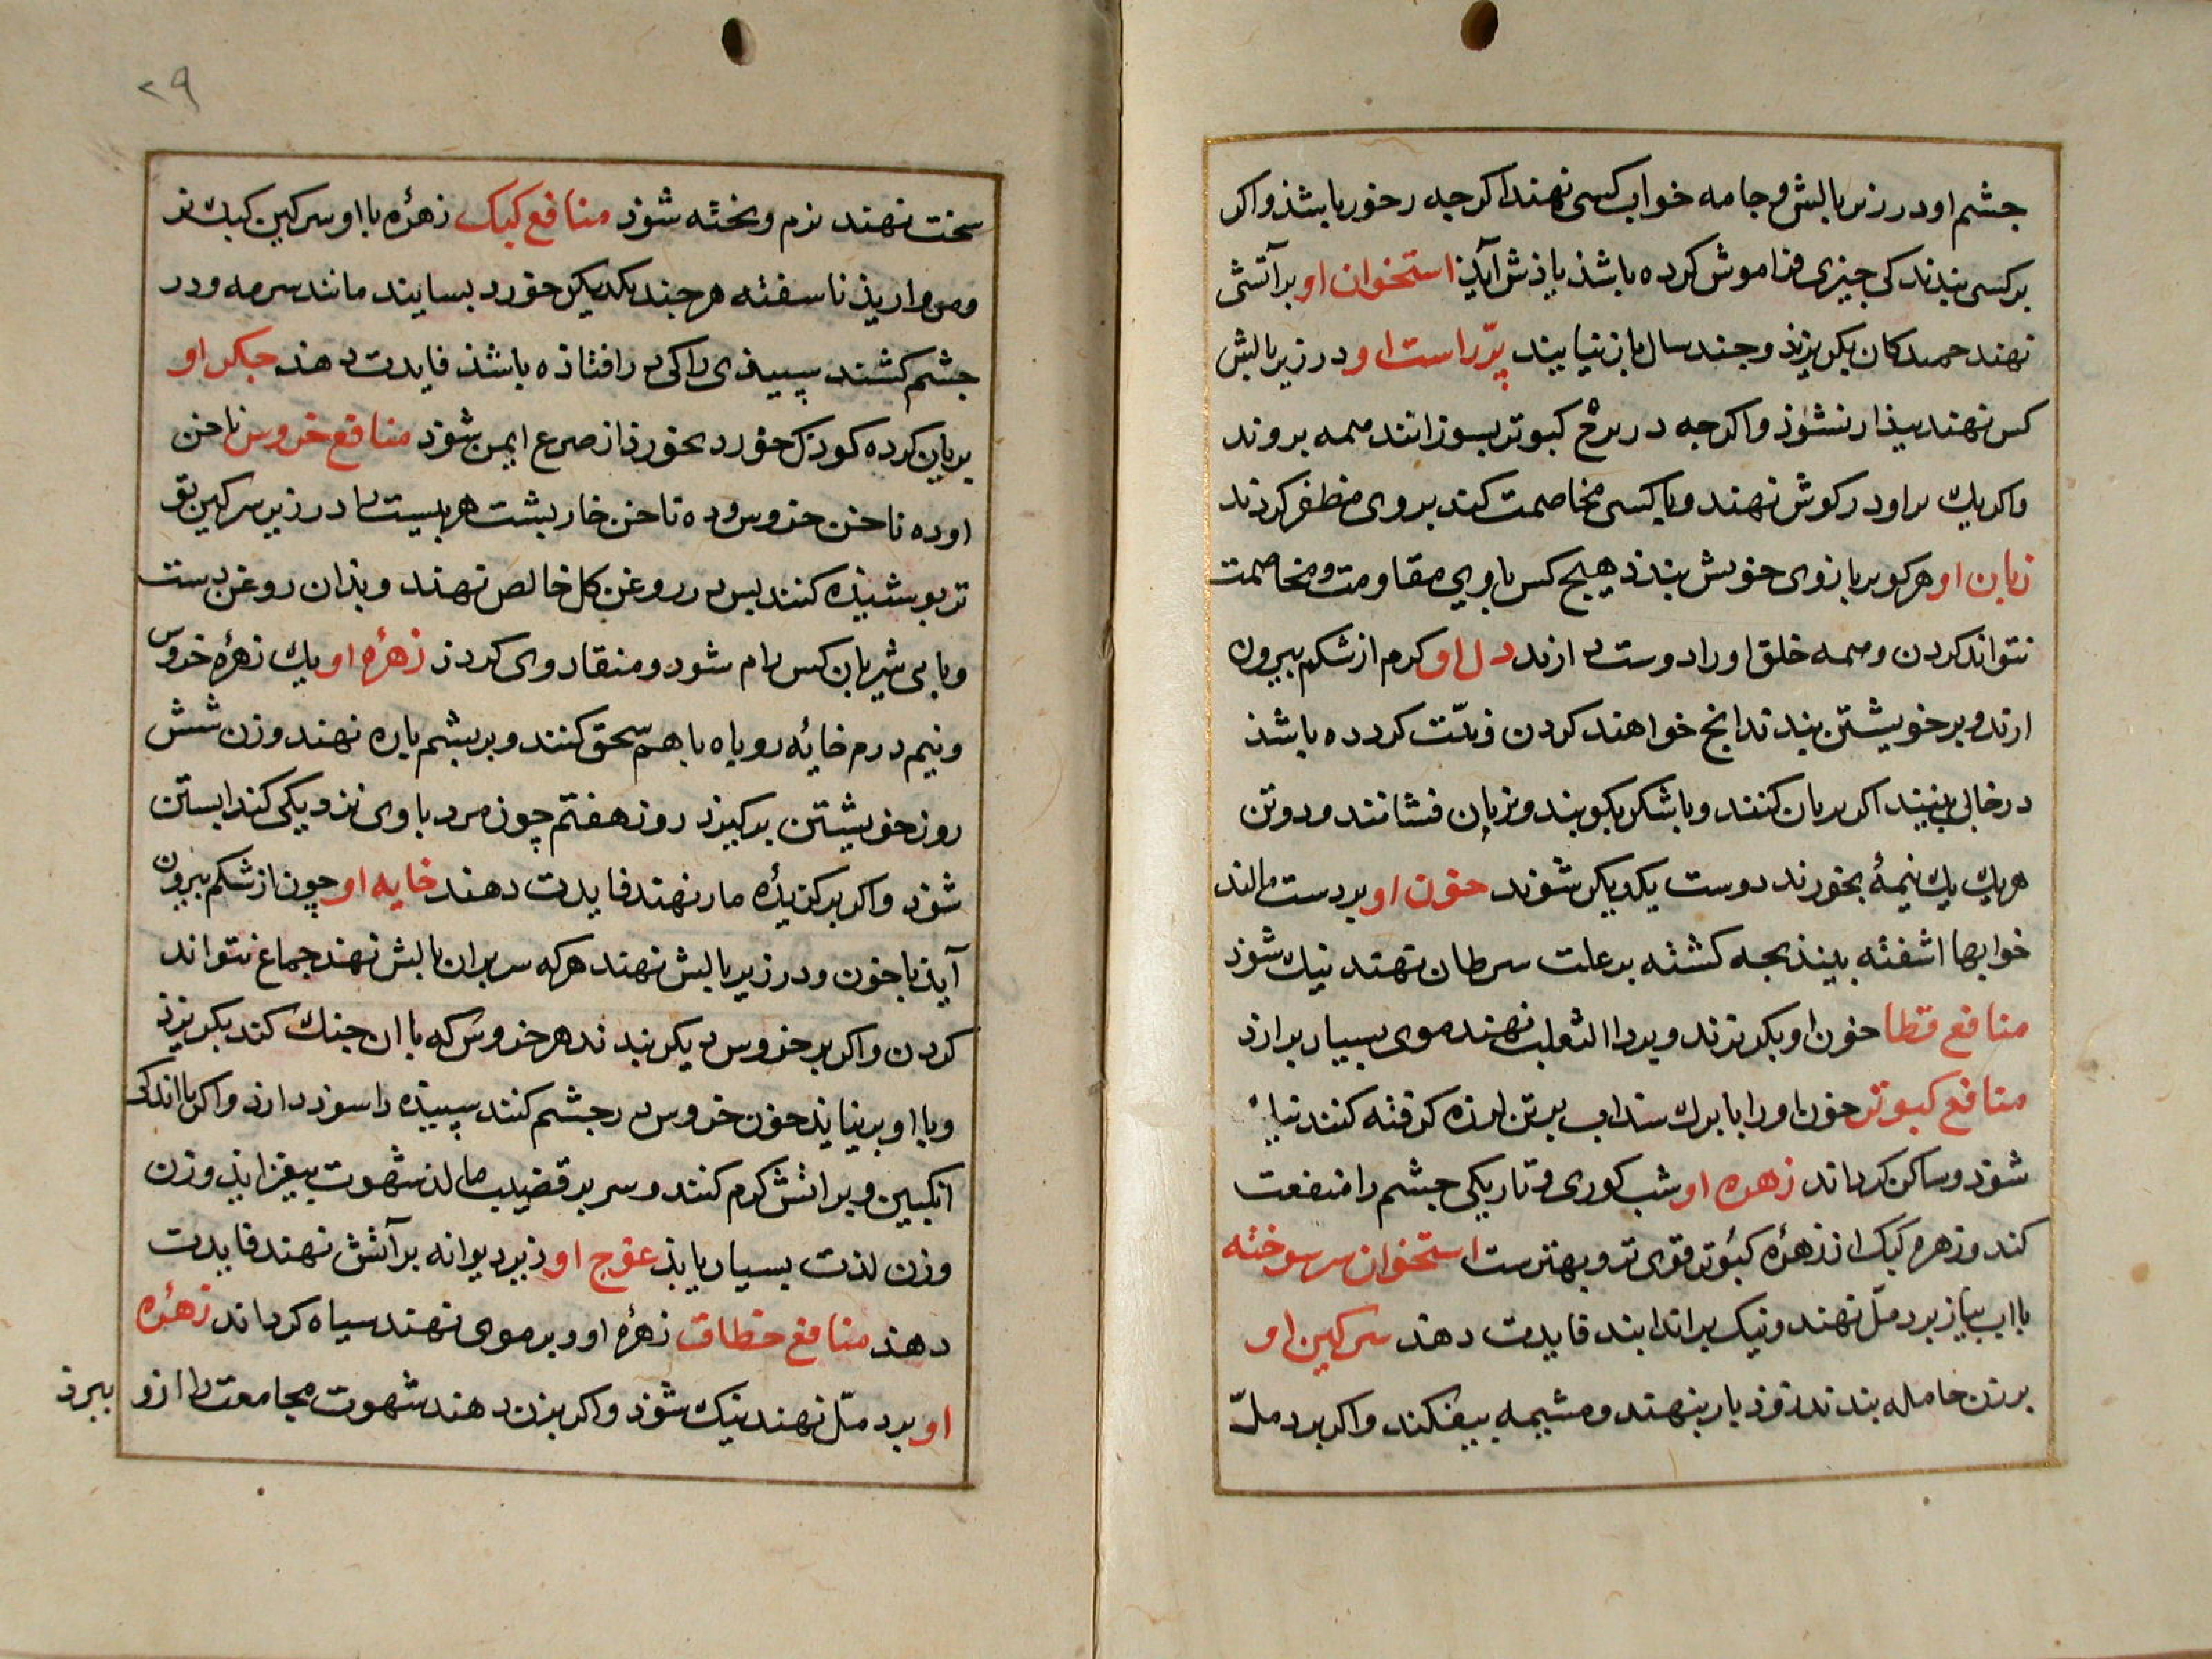 جشم او در زیر بالش و جامه خواب کسی نهند اکرجه رخور باشذ واکر
بر کسی بندند کی جیزی فراموش کرده باشذ یاذش آیذ استخوان او بر آتشی
نهند کان بکریزند وجند سال باز نیایند پرّ راست او در زیر بالش
کس نهند بیذار نشوذ واکرجه در برج کبوتر بسوزانند همه بروند
واکر یك براو در کوش نهند وبا کسی مخاصمت کند بروی مظفر کردند
زبان او هر کو بر بازوی خویش بندذ هیج کس با وی مقاومت ومخاصمت
نتواند کردن وهمه خلق اورا دوست دارند دل او کرم از شکم بیرون
ارند وبر خویشتن بندند انج خواهند کردن ونیّت کرده باشذ
در خالی بینند اکر بریان کنند وبا شکر بکوبند وبریان فشانند ودوتن
هریك یك نیمهٔ بخورند دوست یکدیکر شوند خون او بر دست مالند
خوابها اشفته بینذ بجه کشته بر علت سرطان نهند نیك شوذ
منافع قطا خون او بکریزند وبر داالثعلب نهند موی بسیار برارذ
منافع کبوتر خون اورا با برك سنداب بر تن لرزه کرفته کنند
شوذ وساکن کرداند زهره او شب کوری وتاریکی جشم را منفعت
کند وزهره کبک از زهرهٔ کبوتر قوی تر وبهترست استخوان سر سوخته
با اب بیاز بر دمّل نهند ونیک بر اندایند فایدت دهند سرکین او
بر زن حامله بندند زوذ بار بنهند ومشیمه بیفکند واکر بر دملّ
۲۹
سخت نهند نرم وبخته شوذ منافع کبک زهرهٔ با او سرکین کبك نر
ومرواریذ ناسفته هرجند یکدیکر خورد بسایند مانند سرمه ودر
جشم کشند سپیذی را کی در افتاذه باشذ فایدت دهذ جکر او
بریان کرده کوذك خورد بخورذ از صرع ایمن شوذ منافع خروس ناخن
او ده ناخن خروس وده ناخن خاربشت هر بیست را در زیر سرکین تو
تر بوشیذه کنند بس در روغن کل خالص نهند وبذان روغن دست
وبا بی شیر بان کس رام شود ومنقاد وی کردذ زهرهٔ او یك زهرهٔ خروس
ونیم درم خایهٔ روباه با هم سحق کنند وبر بشم باره نهند وزن شش
روز خویشتن بر کیرد روز هفتم چون مرد باوی نزدیکی کند ابستن
شوذ واکر بر کزیدهٔ مار نهند فایدت دهند خایه او چون از شکم بیرون
آیذ با خون ودر زیر بالش نهند هر که سر بران بالش نهند جماع نتواند
کردن واکر بر خروس دیکر بندند هر خروس که با ان جنك کند بکریزذ
وبا او بر نیایذ خون خروس در جشم کنند سپیذه را سوذ دارذ واکر با اندکی
انکبین وبر اتش کرم کنند وسر بر قضیب مالذ شهوت بیفزایذ وزن
وزن لذت بسیار یابذ عوج او زیر دیوانه بر آتش نهند فایدت
دهذ منافع خطاف زهرهٔ او وبر موی نهند سیاه کرداند زهرهٔ
او بر دمّل نهند نیک شوذ واکر بزن دهند شهوت مجامعت را ازو
ببرذ